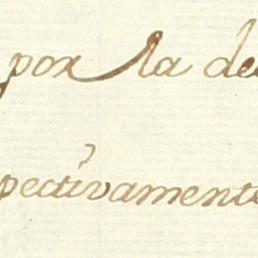 por la de
pectivamente